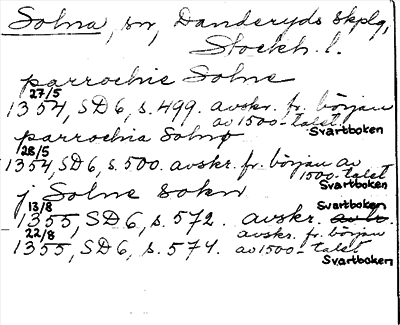 Solna, sn, Danderyds skplg,
Stockh. l.
parrochie Solne
27/5
1354, SD 6, s. 499. avskr. fr. början
av 1500-talet.
Svartboken
parrochia Solnø
28/5
1354, SD 6, s. 500. avskr. fr. början av
1500-talet
Svartboken
j Solne sokn
13/8
Svartboken
1355, SD 6, s. 572. avskr.
22/8
avskr. fr. början
1355, SD 6, s. 574. av 1500-talet
Svartboken